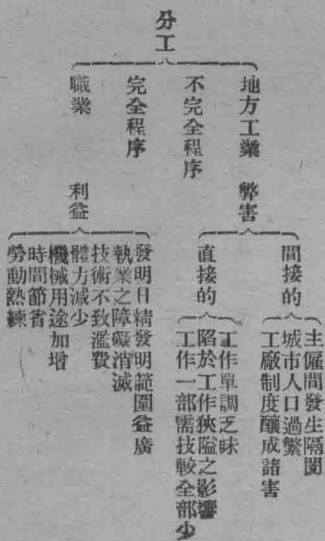 分工
地方工業
不完全程序
完全程序
職業
弊害
間接的
主僱間發生隔閡
城市人口過繁
工廠制度釀成諸害
直接的
工作單調乏味
陷於工作狹隘之影響
工作一部需技較全部少
利益
發明日精發明範圍益廣
執業之障礙消滅
技術不致濫費
體力減少
機械用途加增
時間節省
勞動熟練